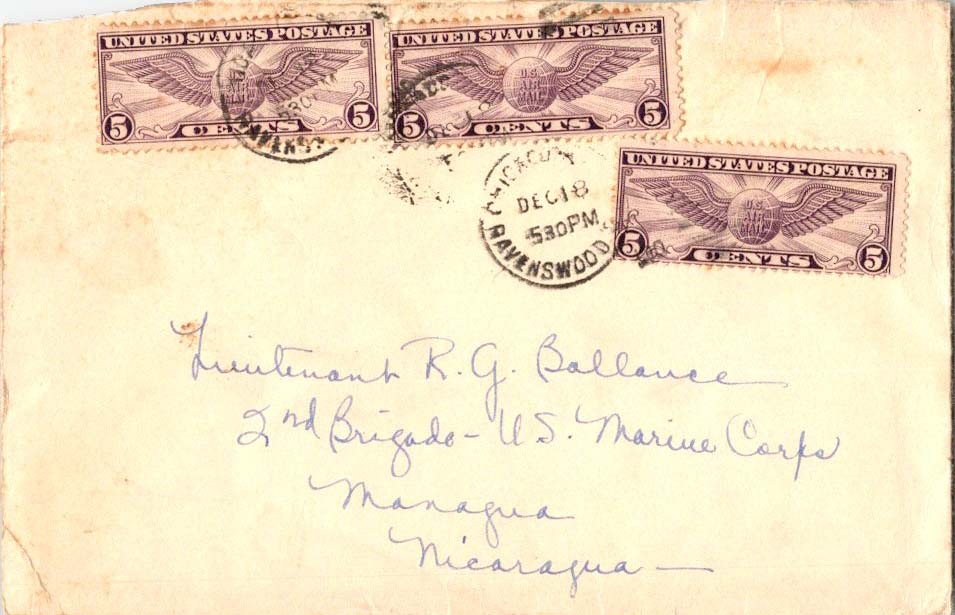 UNITED STATES POSTAGE
U.S. AIR MAIL
5 CENTS 5
UNITED STATES POSTAGE
U.S. AIR MAIL
5 CENTS 5
UNITED STATES POSTAGE
U.S. AIR MAIL
5 CENTS 5
CHICAGO
DEC 18
530 PM
RAVENSWOOD
Lieutenant R. G. Ballance
2nd Brigade - U.S. Marine Corps
Managua
Nicaragua